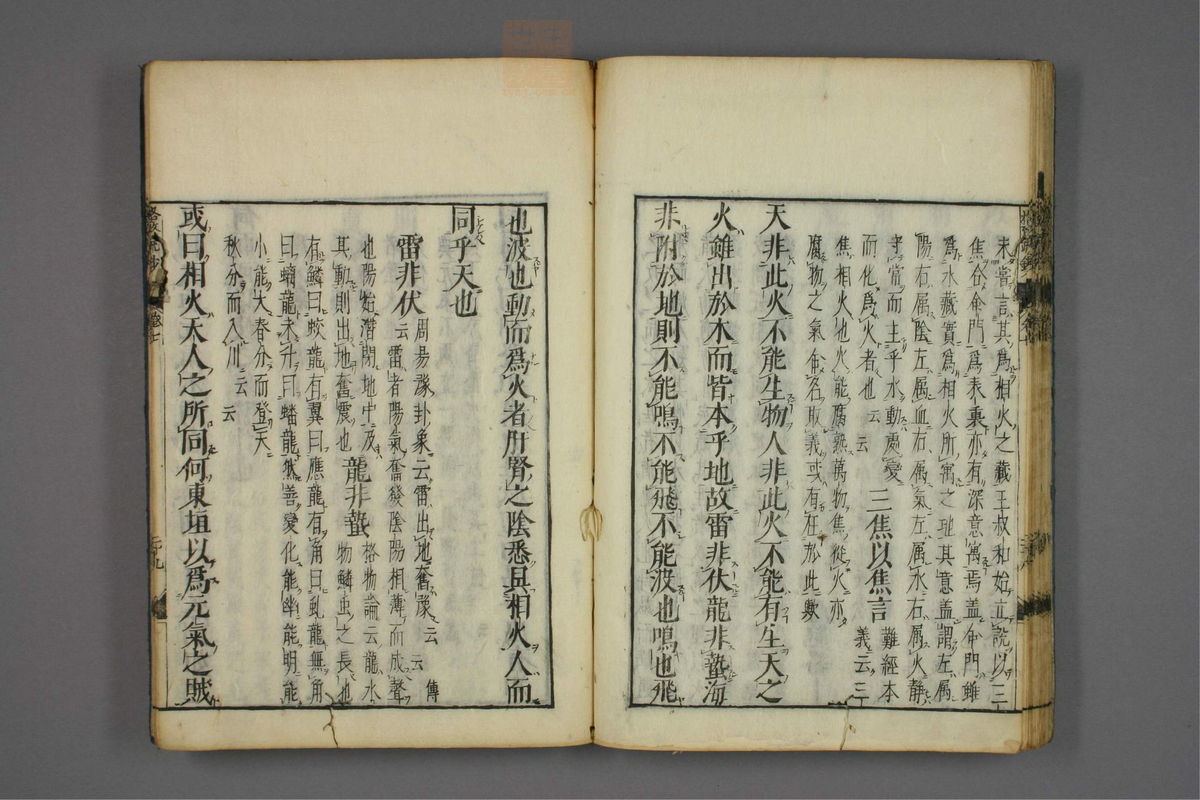 未嘗言其爲相火之藏王叔和始立説以三
焦合命門爲表裏亦有深意寓焉盖命門雖
爲水藏實爲相火所寓之地其意盖謂左属
陽右属陰左属血右属氣左属水右属火静
守常而主乎水動處變
而化爲火者也云云
三焦以焦言
難經本
義云三
焦相火也火能腐熟萬物焦從火亦
腐物之氣命名取義或有在於此歟
天非此火不能生物人非此火不能有生天之
火雖出於木而皆本乎地故雷非伏龍非蟄海
非附於地則不能鳴不能飛不能波也鳴也飛
也波也動而爲火者肝腎之陰悉具相火人而
同乎天也
雷非伏
周易豫卦象云雷出地奮豫云云傳
云雷者陽氣奮發陰陽相薄而成聲
也陽始潜閉地中及
其動則出地奮震也
龍非蟄
格物論云龍水
物鱗虫之長也
有鱗曰蛟龍有翼曰應龍有角曰虬龍無角
曰螭龍未升曰蟠龍然善變化能幽能明能
小能大春分而登天
秋分而入川云云
或曰相火天人之所同何東垣以爲元氣之賊